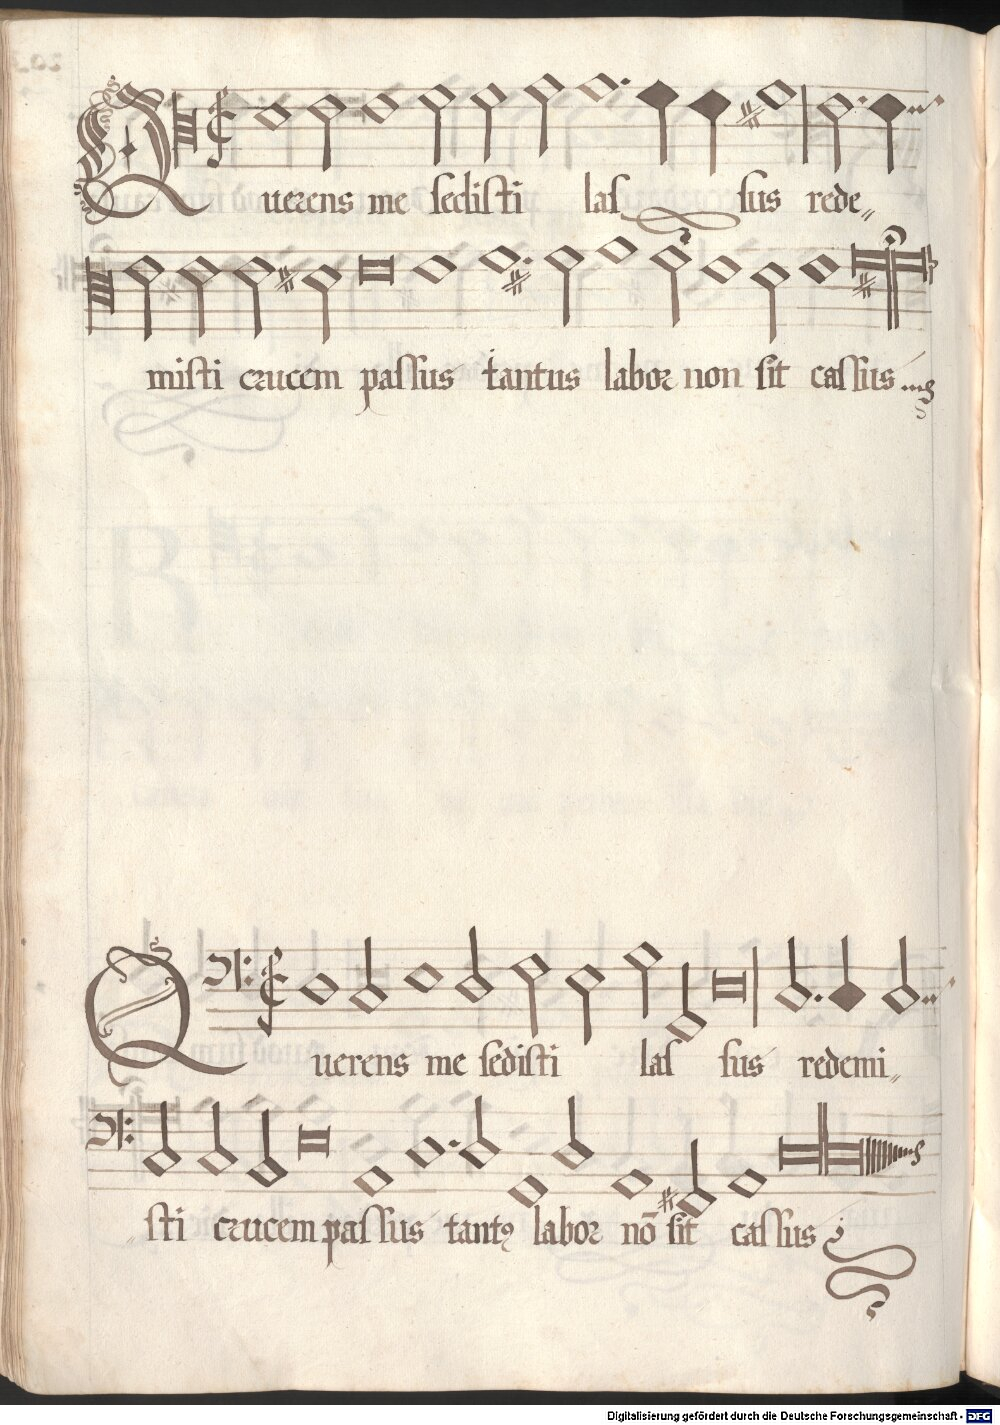 Querens me sedisti las sus rede„
misti crucem passus tantus labor non sit cassus
Querens me sedisti las sus redemi„
„sti crucem passus tantꝯ labor nō sit cassus
Digitalisierung gefördert durch die Deutsche Forschungsgemeinschaft - DFG